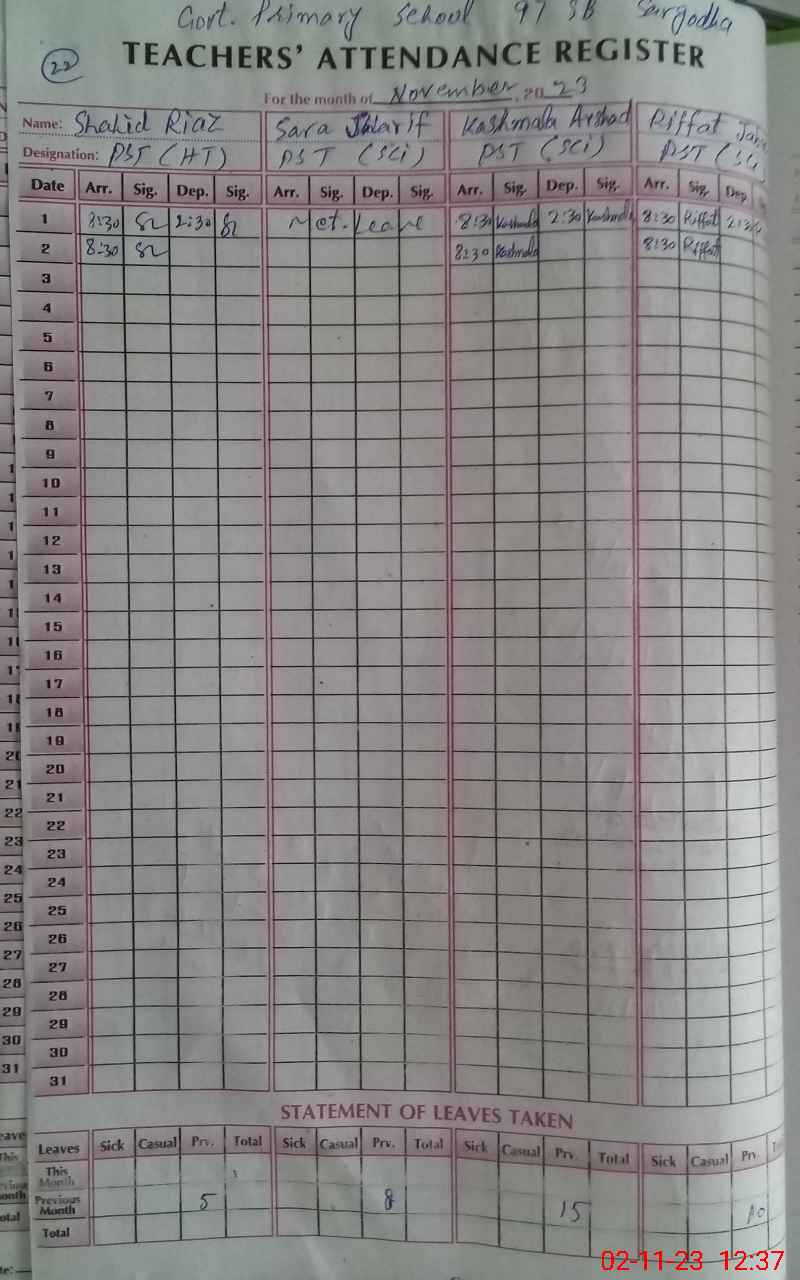 Govt. Primary School 97 SB Sargodha
22
TEACHERS' ATTENDANCE REGISTER
For the month of November, 2023
Name: Shahid Riaz Sara Kashmala Arshad Riffat
Designation: PST (HT) PST (Sci) PST (Sci) PST (Sci
Date Arr. Sig. Dep. Sig. Arr. Sig. Dep. Sig. Arr. Sig. Dep. Sig. Arr. Sig. Dep
1 8:30 2:30 Met. Leave 8:30 Kashmala 2:30 Kashmala 8:30 Riffat 2:30
2 8:30 8:30 Kashmala 8:30 Riffat
3
4
5
6
7
8
9
10
11
12
13
14
15
16
17
18
19
20
21
22
23
24
25
26
27
28
29
30
31
STATEMENT OF LEAVES TAKEN
Leaves Sick Casual Prv. Total Sick Casual Prv. Total Sick Casual Prv. Total Sick Casual Prv.
This Month
Previous Month 5 8 15 10
Total
02-11-23 12:37